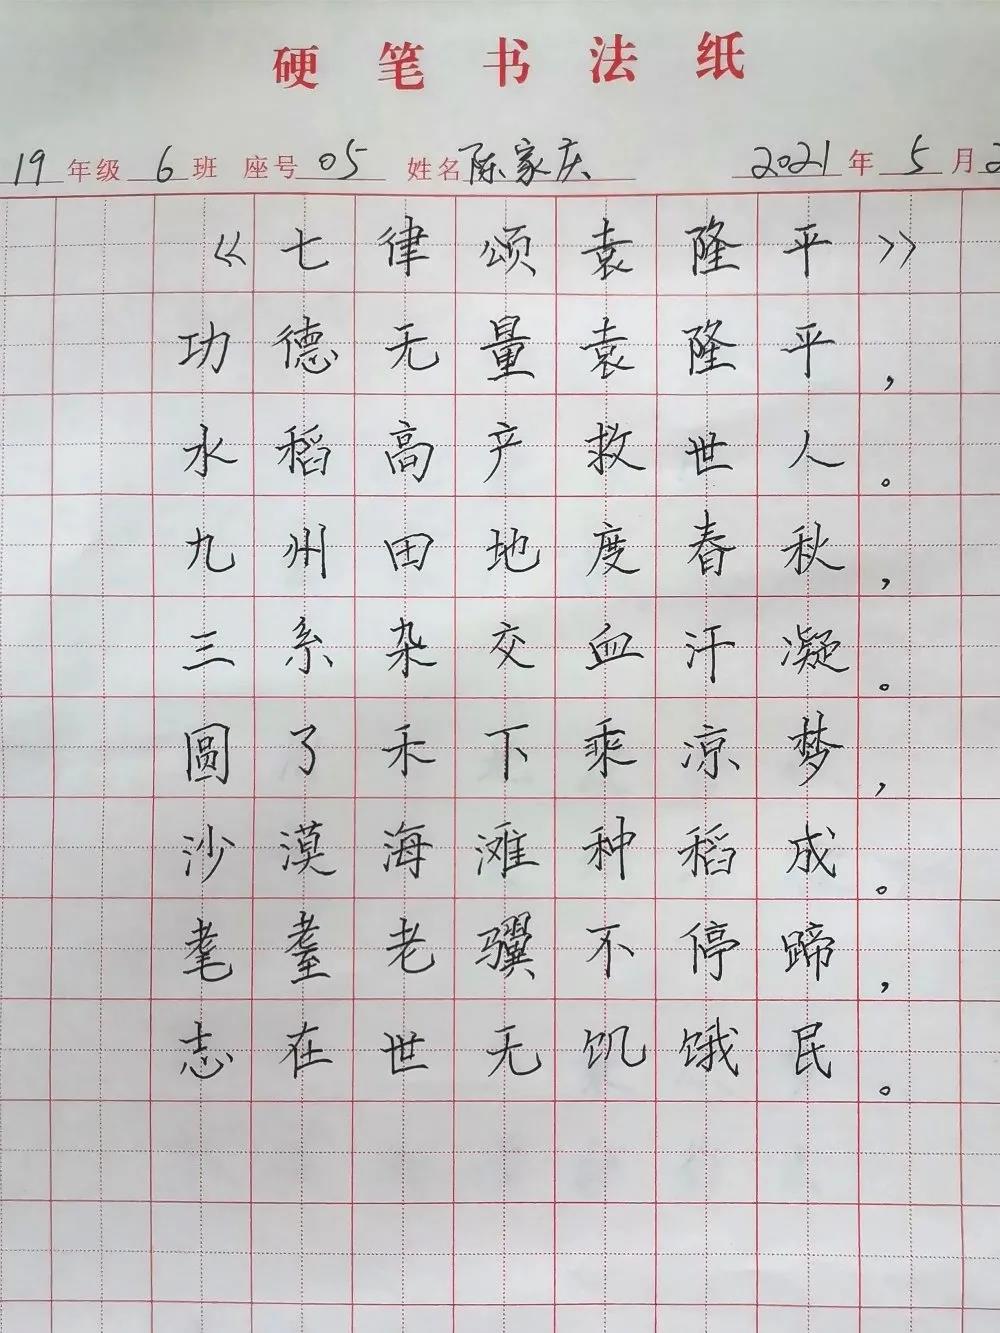 硬笔书法纸
19年级 6班 座号 05 姓名 陈家庆 2021年 5月 2
《七律颂袁隆平》
功德无量袁隆平，
水稻高产救世人。
九州田地度春秋，
三系杂交血汗凝。
圆了禾下乘凉梦，
沙漠海滩种稻成。
耄耋老骥不停蹄，
志在世无饥饿民。